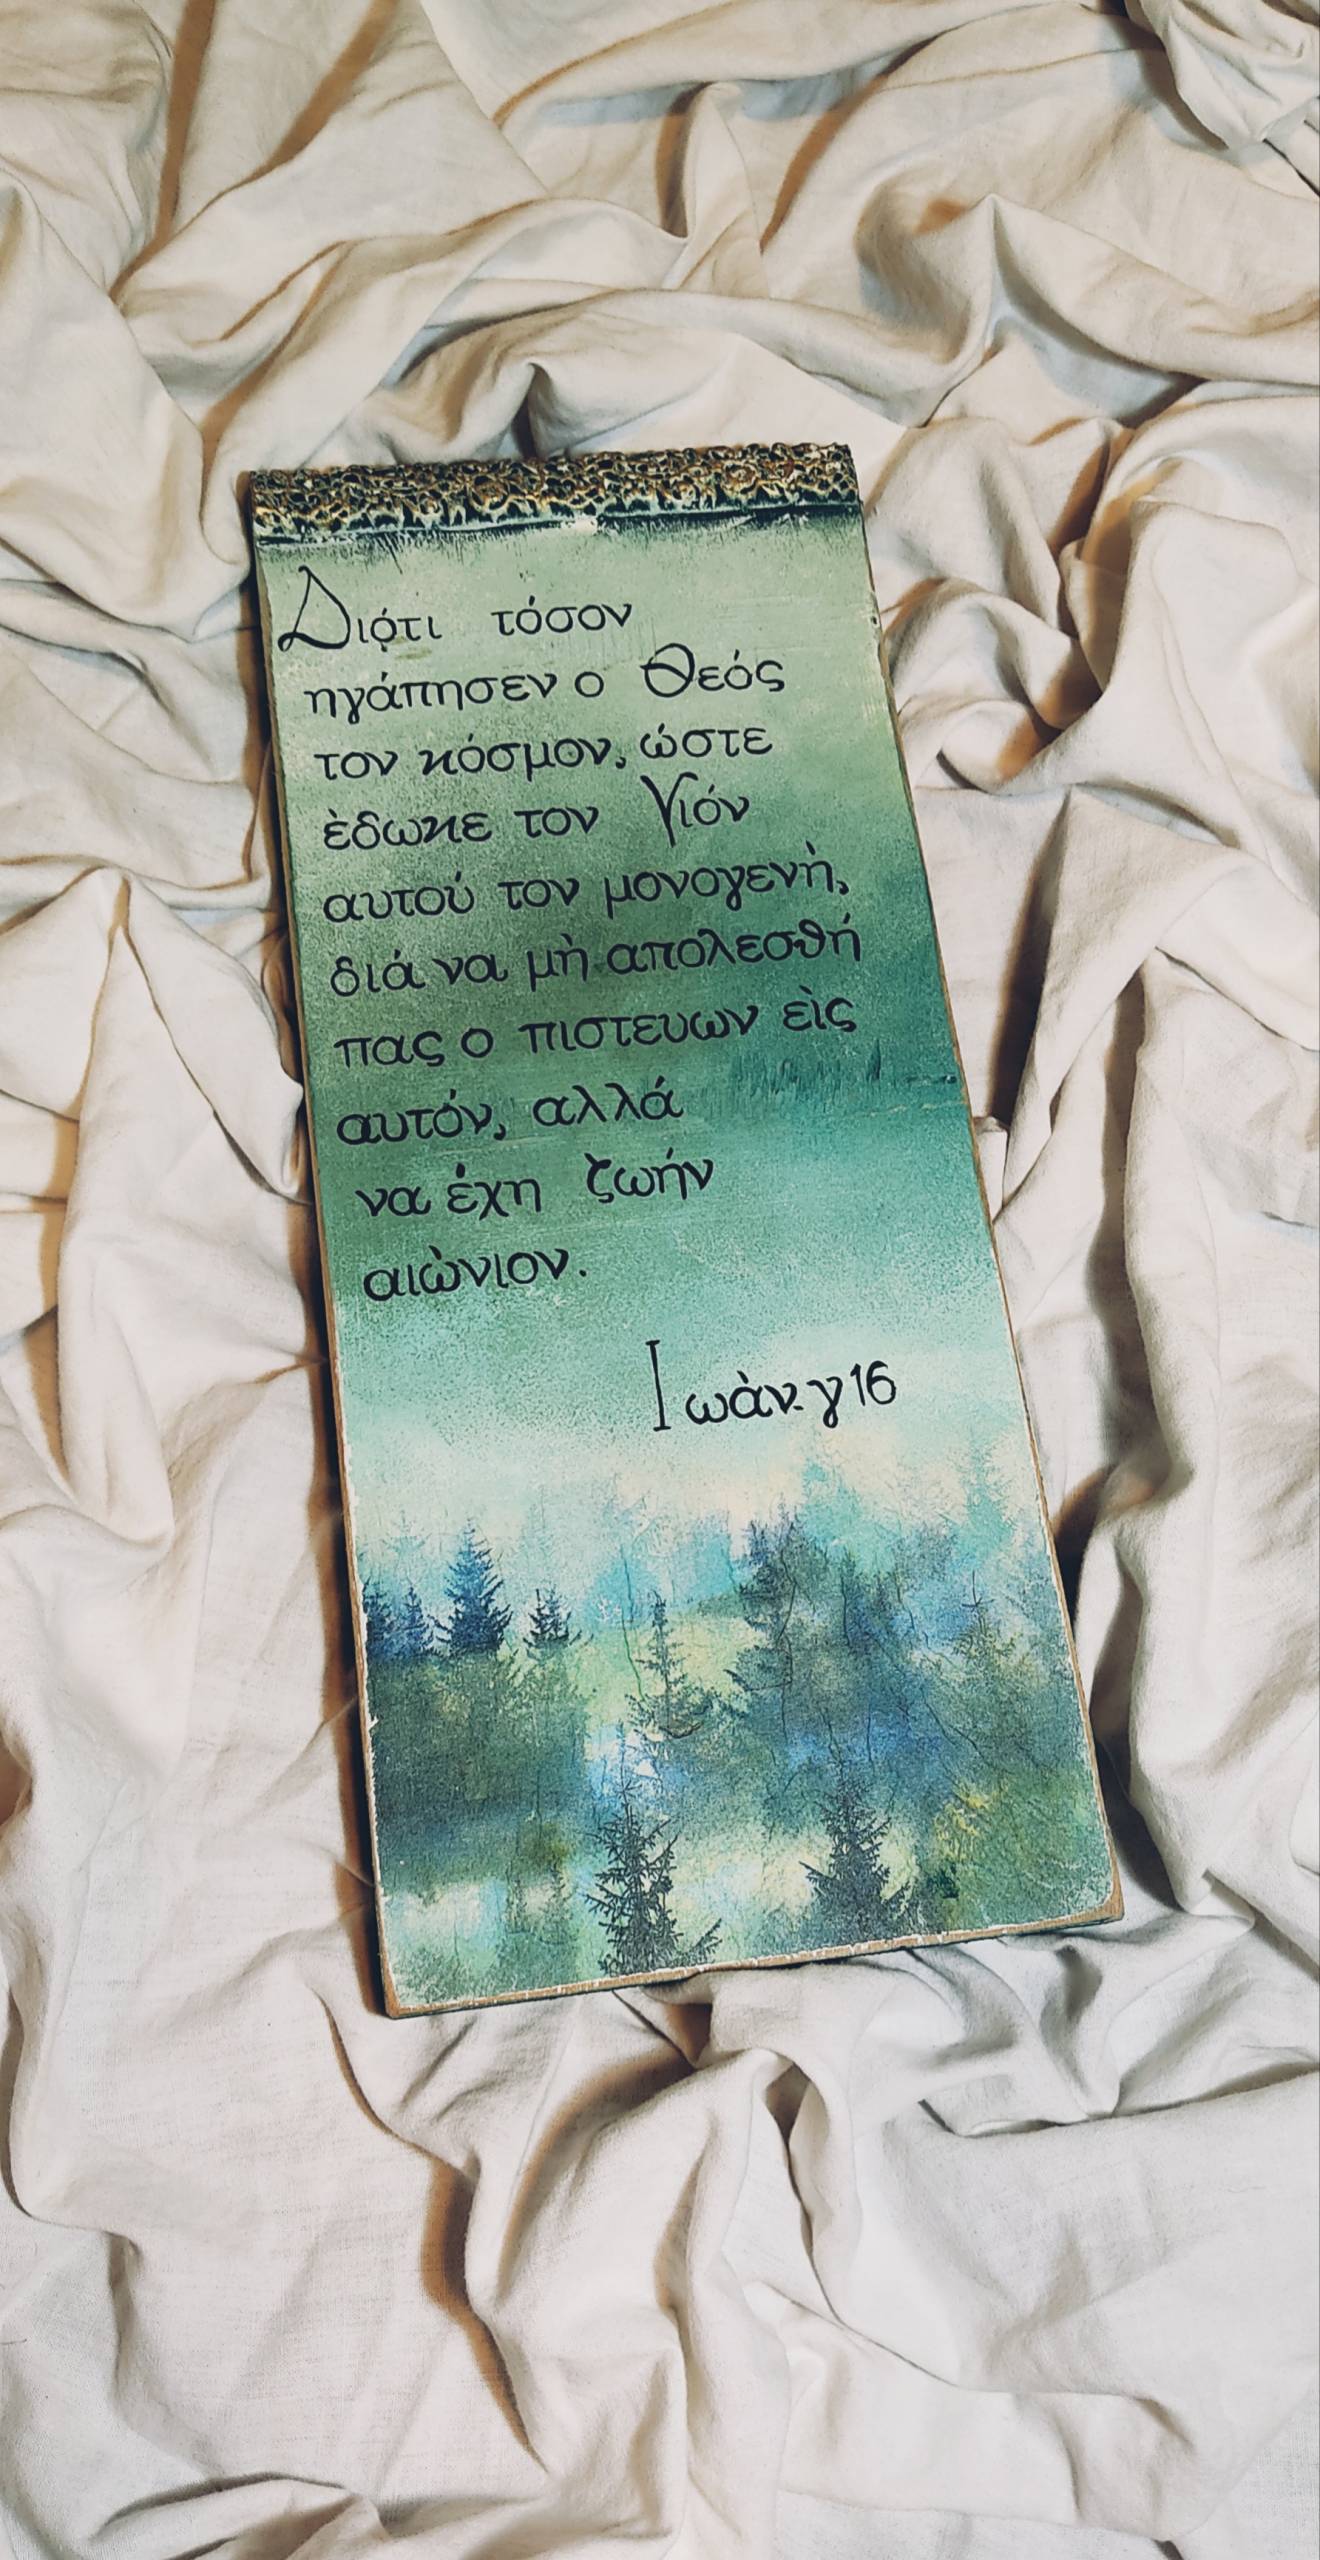 Διότι τόσον
ηγάπησεν ο Θεός
τον κόσμον, ώστε
ὲδωκε τον Υιόν
αυτού τον μονογενὴ,
διά να μὴ απολεσθή
πας ο πιστευων εὶς
αυτόν, αλλά
να έχη ζωήν
αιὼνιον.
Ιωὰν. γ 16